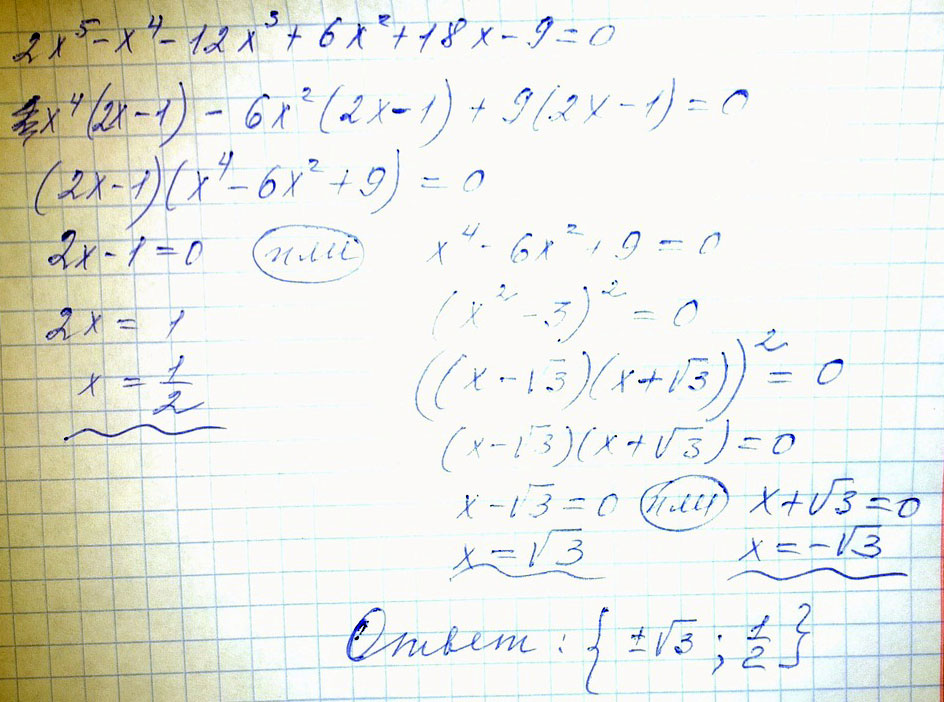 2x⁵ - x⁴ - 12x³ + 6x² + 18x - 9 = 0
x⁴(2x-1) - 6x²(2x-1) + 9(2x-1) = 0
(2x-1)(x⁴ - 6x² + 9) = 0
2x-1=0 или x⁴ - 6x² + 9 = 0
2x = 1 (x² - 3)² = 0
x = 1/2 ((x-√3)(x+√3))² = 0
(x-√3)(x+√3) = 0
x-√3=0 или x+√3=0
x=√3 x=-√3
Ответ: {±√3; 1/2}